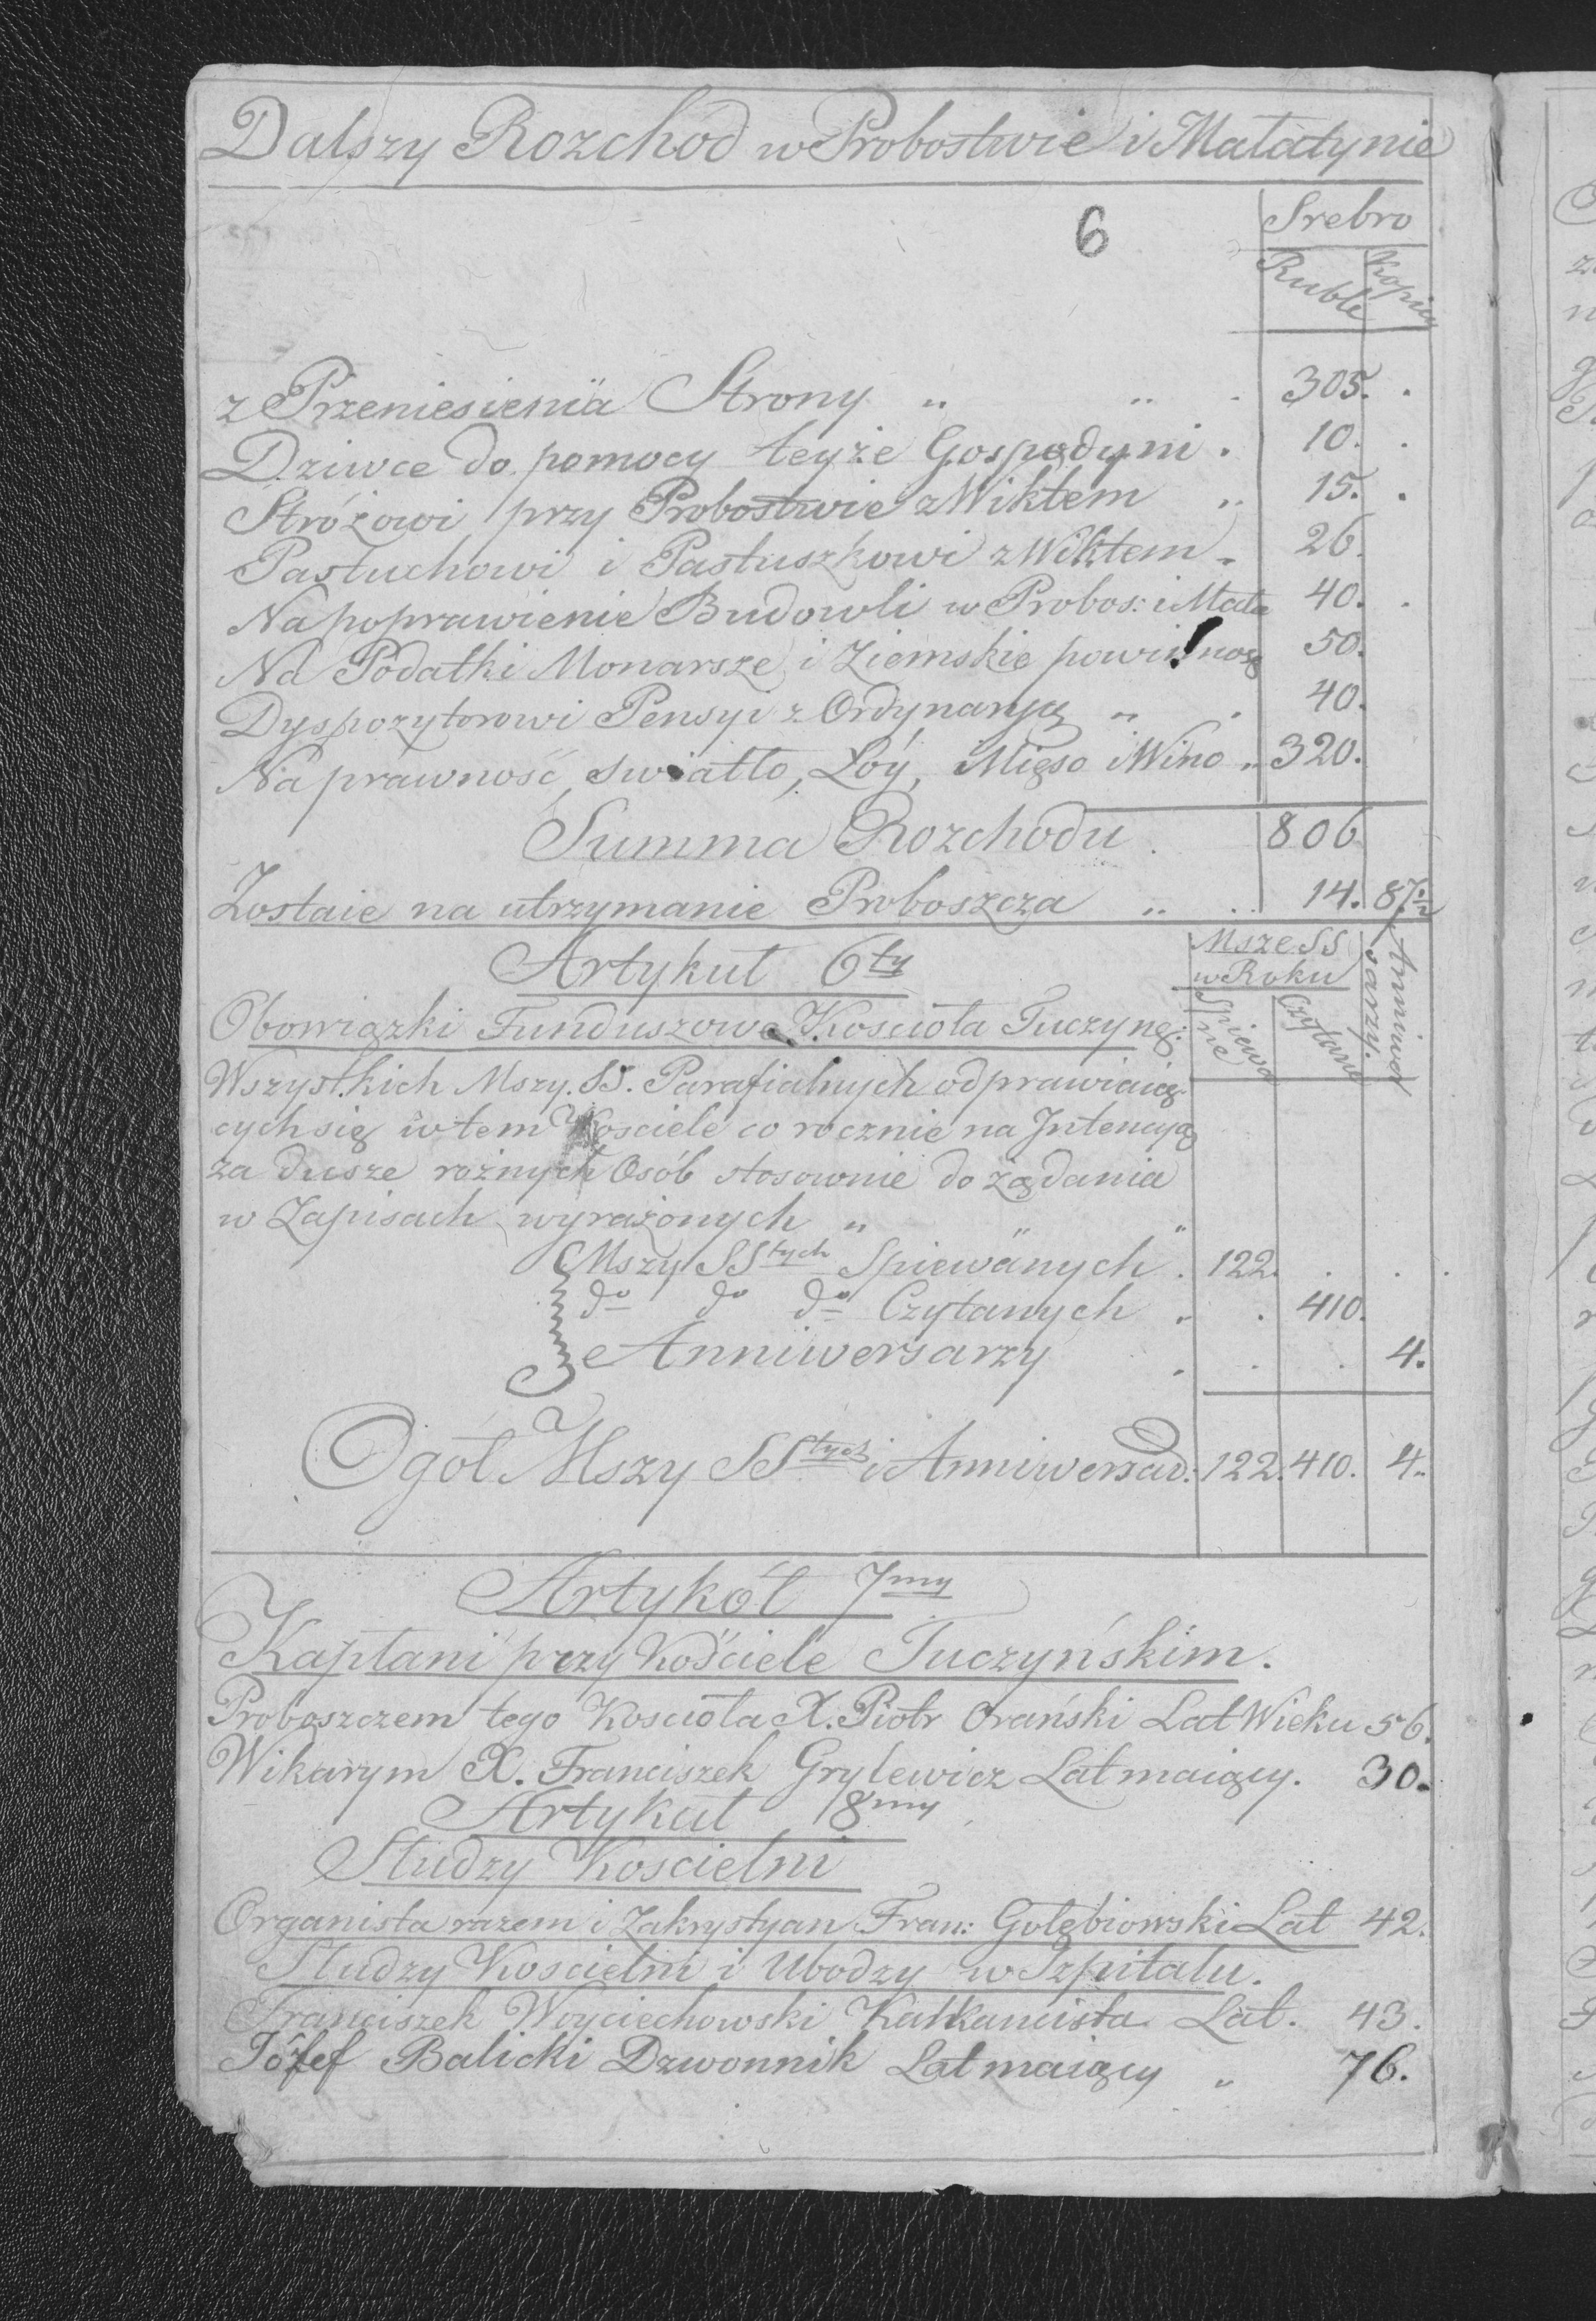 Dalszy Rozchod w Probostwie i Małatynie
6
Srebro
Ruble Kopiey
z Przeniesienia Strony „ „ . 305. .
Dziwce do pomocy teyże Gospodyni . 10. .
Stróżowi przy Probostwie z Wiktem „ 15. .
Pastuchowi i Pastuszkowi z Wiktem . 26.
Na poprawienie Budowli w Probos: i Mała 40. .
Na Podatki Monarsze i Ziemskie powinnosc 50.
Dyspozytorowi Pensyi z Ordynaryą „ . 40.
Na prawność, swiatło, Łóy, Mięso i Wino „ 320.
Summa Rozchodu . 806
Zostaie na utrzymanie Proboszcza „ .. 14. 87½
Artykuł 6ty
Msze SS w Roku
Spiewane Czytane Anniwersarzy.
Obowiązki Funduszowe Kosciota Tuczyne:
Wszystkich Mszy. SS. Parafialnych odprawiaią-
cych się w tem Kosciele co rocznie na Jntencyą
za dusze rożnych Osób stosownie do żądania
w Zapisach wyrażonych „ „ „
Mszy SStych Spiewanych . 122. . . .
do do do Czytanych . . 410.
Anniwersarzy . . . 4.
Ogół Mszy SStych i Anniwersar: 122. 410. 4.
Artykół 7my
Kapłani przy Kościele Tuczyńskim.
Proboszczem tego Kosciota X. Piotr Orański Lat Wieku 56.
Wikarym X. Franciszek Grylewicz Lat maiący. 30.
Artykuł 8my
Słudzy Koscielni
Organista razem i Zakrystyan Fran: Gołębiowski Lat 42.
Słudzy Koscielni i Ubodzy w Szpitalu.
Franciszek Woyciechowski Kalkancista Lat. 43.
Józef Balicki Dzwonnik Lat maiący „ 76.